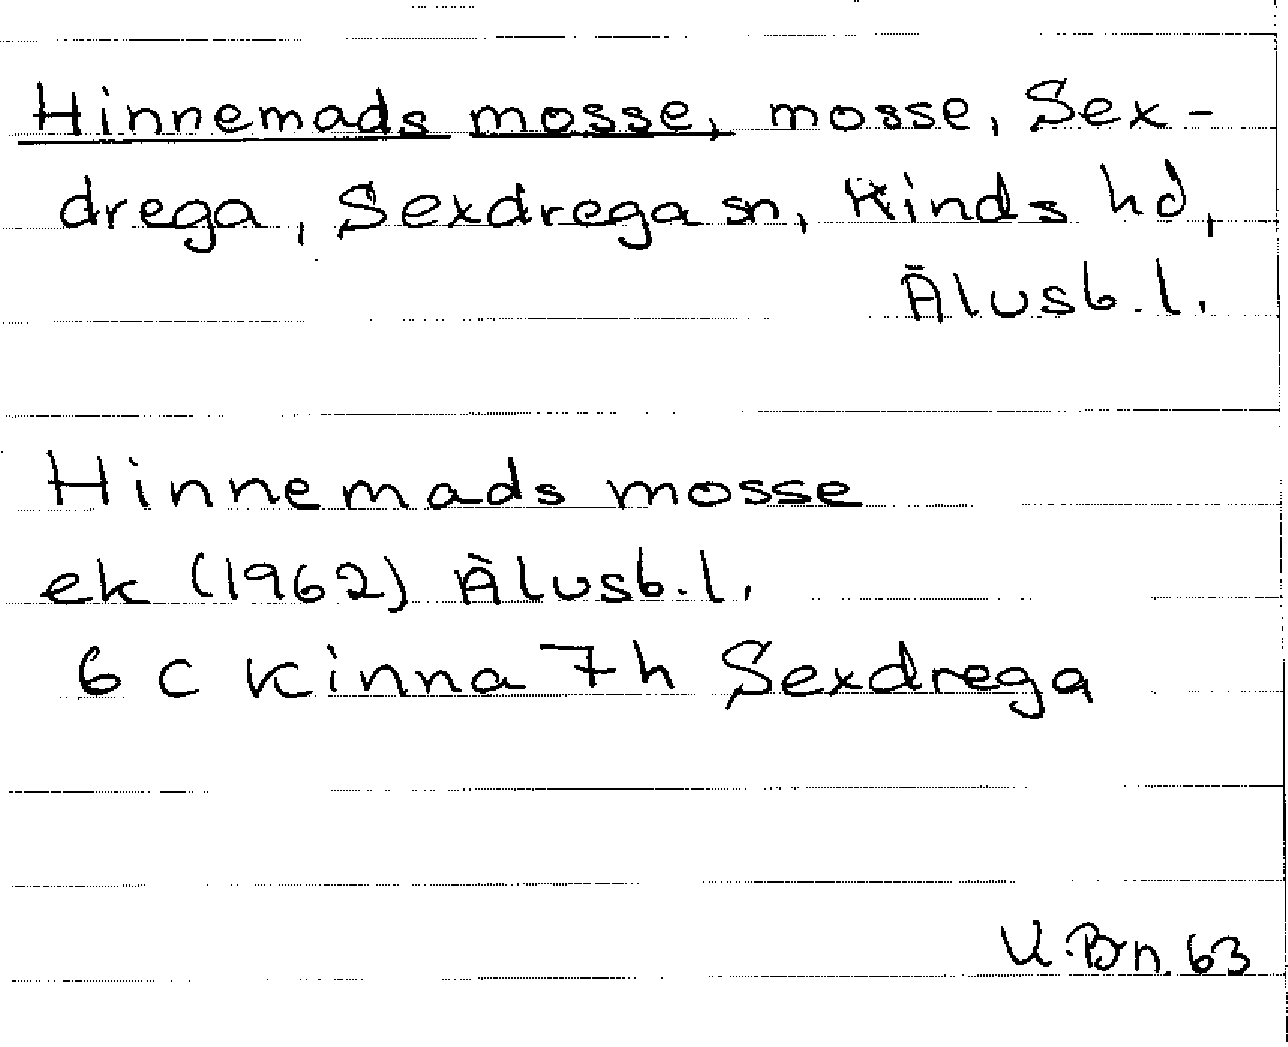 Hinnemads mosse, mosse, Sex-
drega, Sexdrega sn, Kinds hd,
Älvsb. l.
Hinnemads mosse
ek (1962) Älvsb. l.
6 c Kinna 7h Sexdrega
U.Bn. 63